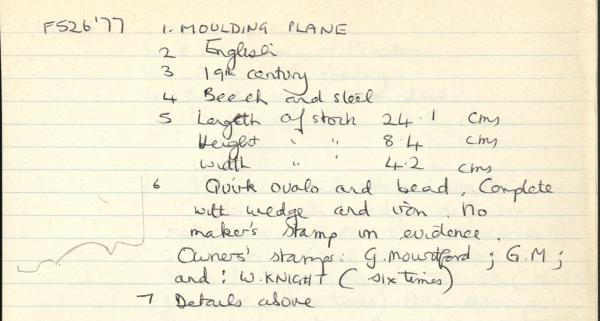 F526'77 1. MOULDING PLANE
2 English
3 19th century
4 Beech and steel
5 Length of stock 24.1 cms
Height " " 8.4 cms
Width " " 4.2 cms
6 Quirk ovolo and bead. Complete
with wedge and iron. No
maker's stamp in evidence.
Owners' stamps: G. Mountford ; G.M ;
and : W. KNIGHT ( six times)
7 Details above